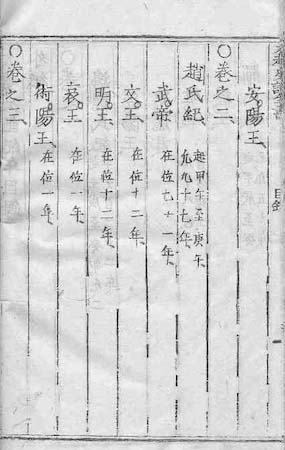 目錄
安陽王
○卷之二
趙氏紀
起甲午至庚午
凡九十七年
武帝 在位七十一年
文王 在位十二年
明王 在位十二年
哀王 在位一年
術陽王 在位一年
○卷之三